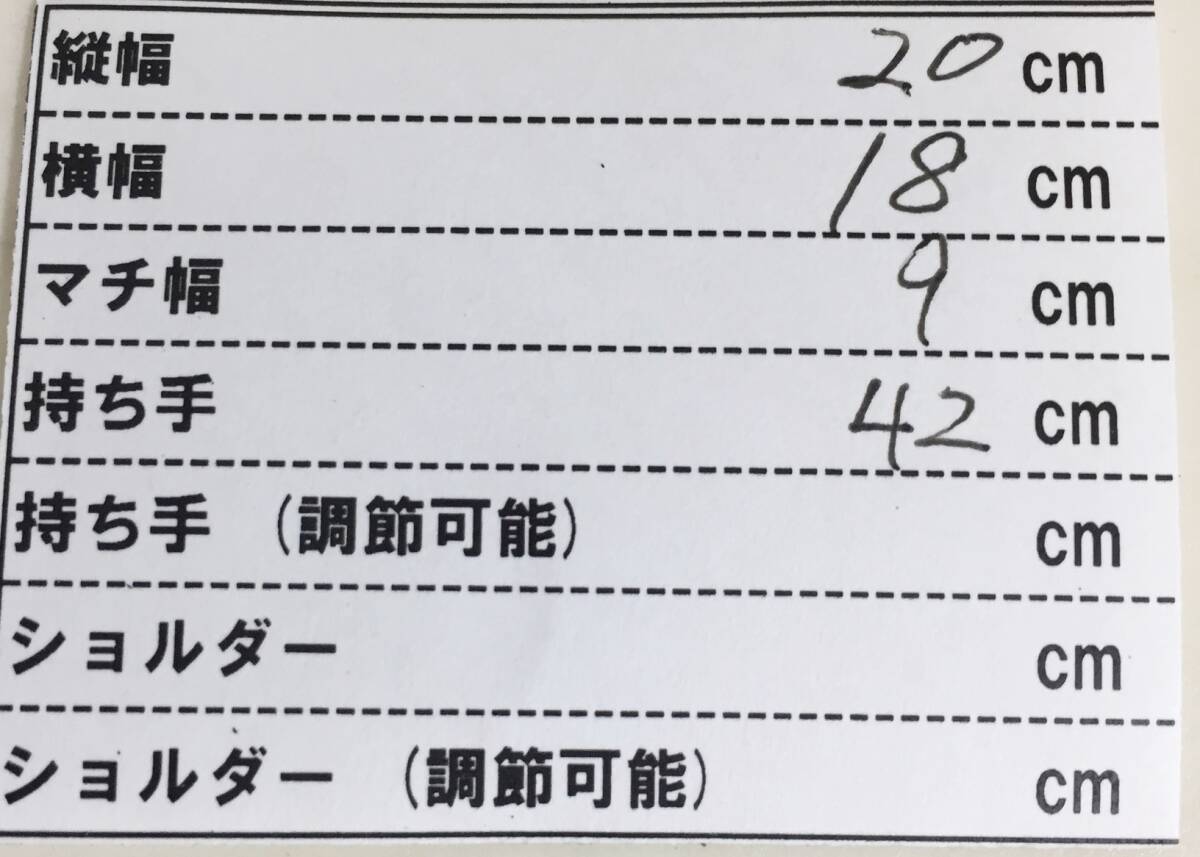 縦幅 20 cm
横幅 18 cm
マチ幅 9 cm
持ち手 42 cm
持ち手 (調節可能) cm
ショルダー cm
ショルダー (調節可能) cm